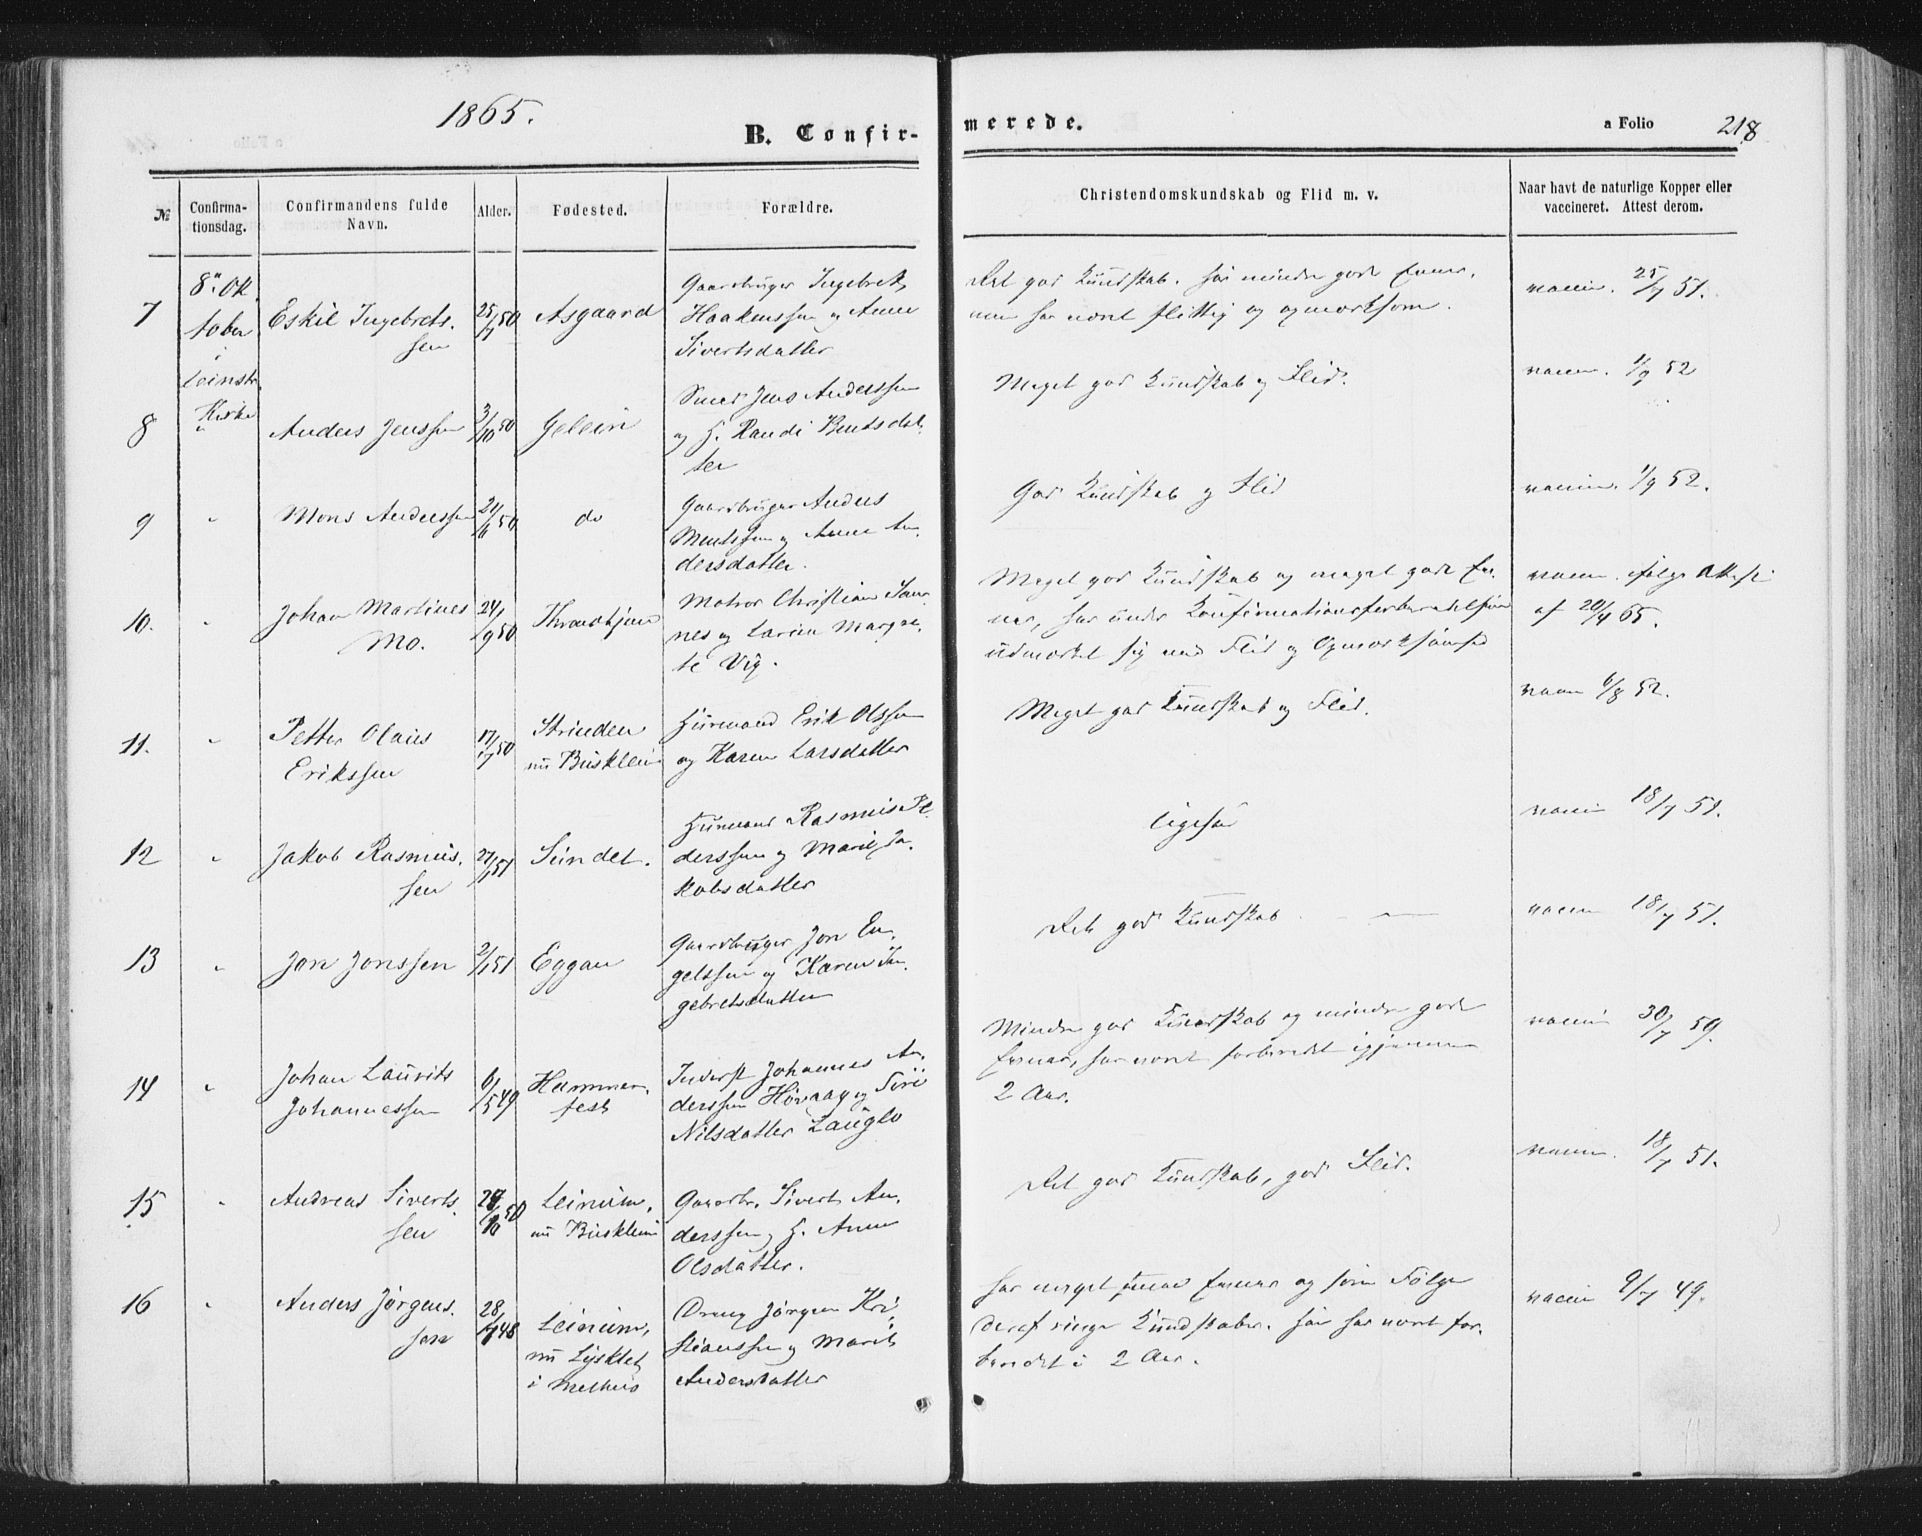 1865.
B. Confirmerede.
a Folio 218
№
Confirmationsdag.
Confirmandens fulde Navn.
Alder.
Fødested.
Forældre.
Christendomskundskab og Flid m. v.
Naar havt de naturlige Kopper eller vaccineret. Attest derom.
7
8de Oktober
i
Leinstr.
Kirke
Eskil Ingebretssen
25/7 50
Asgaard
Gaardbruger Ingebret
Haakenssen og Anne
Sivertsdatter
Ret god Kundskab. har mindre gode Evner,
men har vært flittig og opmærksom.
vaccin. 25/7 51.
8
Anders Jenssen
3/10 50
Gelein
Smed Jens Anderssen
og H. Randi Berntsdatter
Meget god Kundskab og Flid.
vaccin. 1/9 52
9
"
Mons Anderssen
do
Gaardbruger Anders
og Anne Andersdatter.
God Kundskab og Flid
vaccin. 1/9 52.
10.
"
Johan Martines
Mo.
24/9 50
Throndhjem
Matros Christian
og Margrete Vig.
Meget god Kundskab og meget gode Evner,
har under Konfirmationsforberedelsen
udmærket sig ved Flid og Opmærksomhed
vaccin. ifølge Attest
af 20/4 65.
11.
"
Petter Olaus
Erikssen
17/7 50
Strinden
nu Busklein
Huusmand Erik Olssen
og Karen Larsdatter
Meget god Kundskab og Flid.
vaccin 6/8 52.
12
"
Jakob Rasmussen
27/1 51
Sundet.
Huusmand Rasmus Pederssen
og Marit Jakobsdatter
ligesaa
vaccin 18/7 51.
13
"
Jon Jonssen
2/1 51
Eggan
Gaardbruger Jon Engelssen
og Karen Ingebretsdatter
Ret god Kundskab — —
vaccin 18/7 51.
14
"
Johan Laurits
Johannessen
6/5 49
Hammerfest
Inderst Johannes Anderssen
Høvaag og Siri
Nilsdatter Lauglo
Mindre god Kundskab og mindre gode
Evner, har vært forberedet igjennem
2 Aar.
vaccin 30/7 59.
15
"
Andreas Sivertssen
Leinum,
nu Busklein
Gaardbr. Sivert Anderssen
og H. Anne
Olsdatter.
Ret god Kundskab, god Flid.
vaccin. 18/7 51.
16
"
Anders Jørgenssen
28/7 48
Leinum,
nu Lysklet
i Melhus
Dreng Jørgen Kristianssen
og Marit
Andersdatter
Har meget smaa Evner og som Følge
deraf ringe Kundskaber. Han har vært forberedet
i 2 Aar.
vaccin 9/7 49.